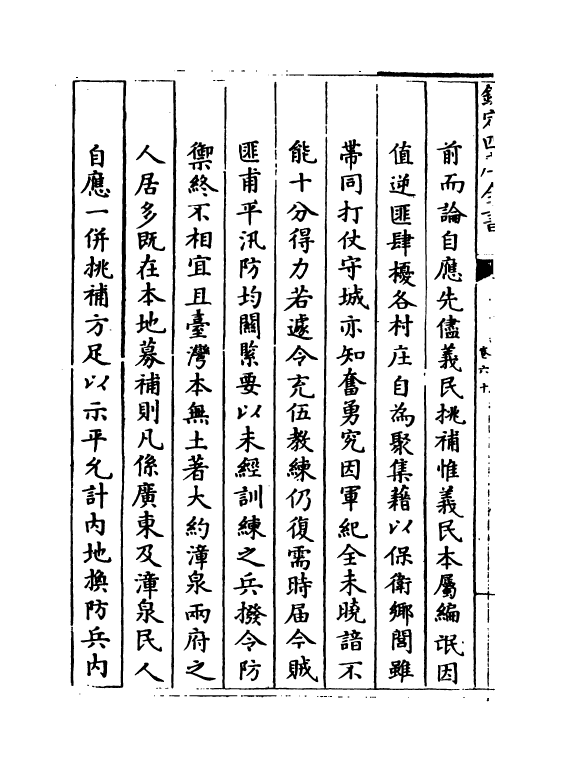 前而論自應先儘義民挑補惟義民本屬編氓因
值逆匪肆擾各村庄自為聚集藉以保衛鄉閭雖
帶同打仗守城亦知奮勇究因軍紀全未曉諳不
能十分得力若遽令充伍教練仍復需時届今賊
匪甫平汛防均關緊要以未經訓練之兵撥令防
禦終不相宜且臺灣本無土著大約漳泉兩府之
人居多既在本地募補則凡係廣東及漳泉民人
自應一併挑補方足以示平允計內地換防兵內